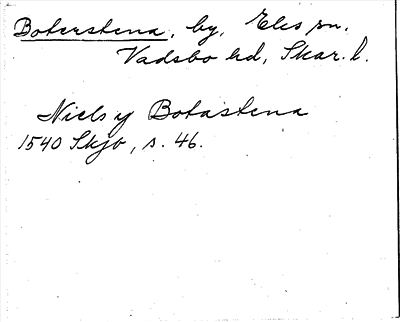 Boterstena, by, Eks sn.
Vadsbo hd, Skar. l.
Niels y Botastena
1540 Skjb, s. 46.